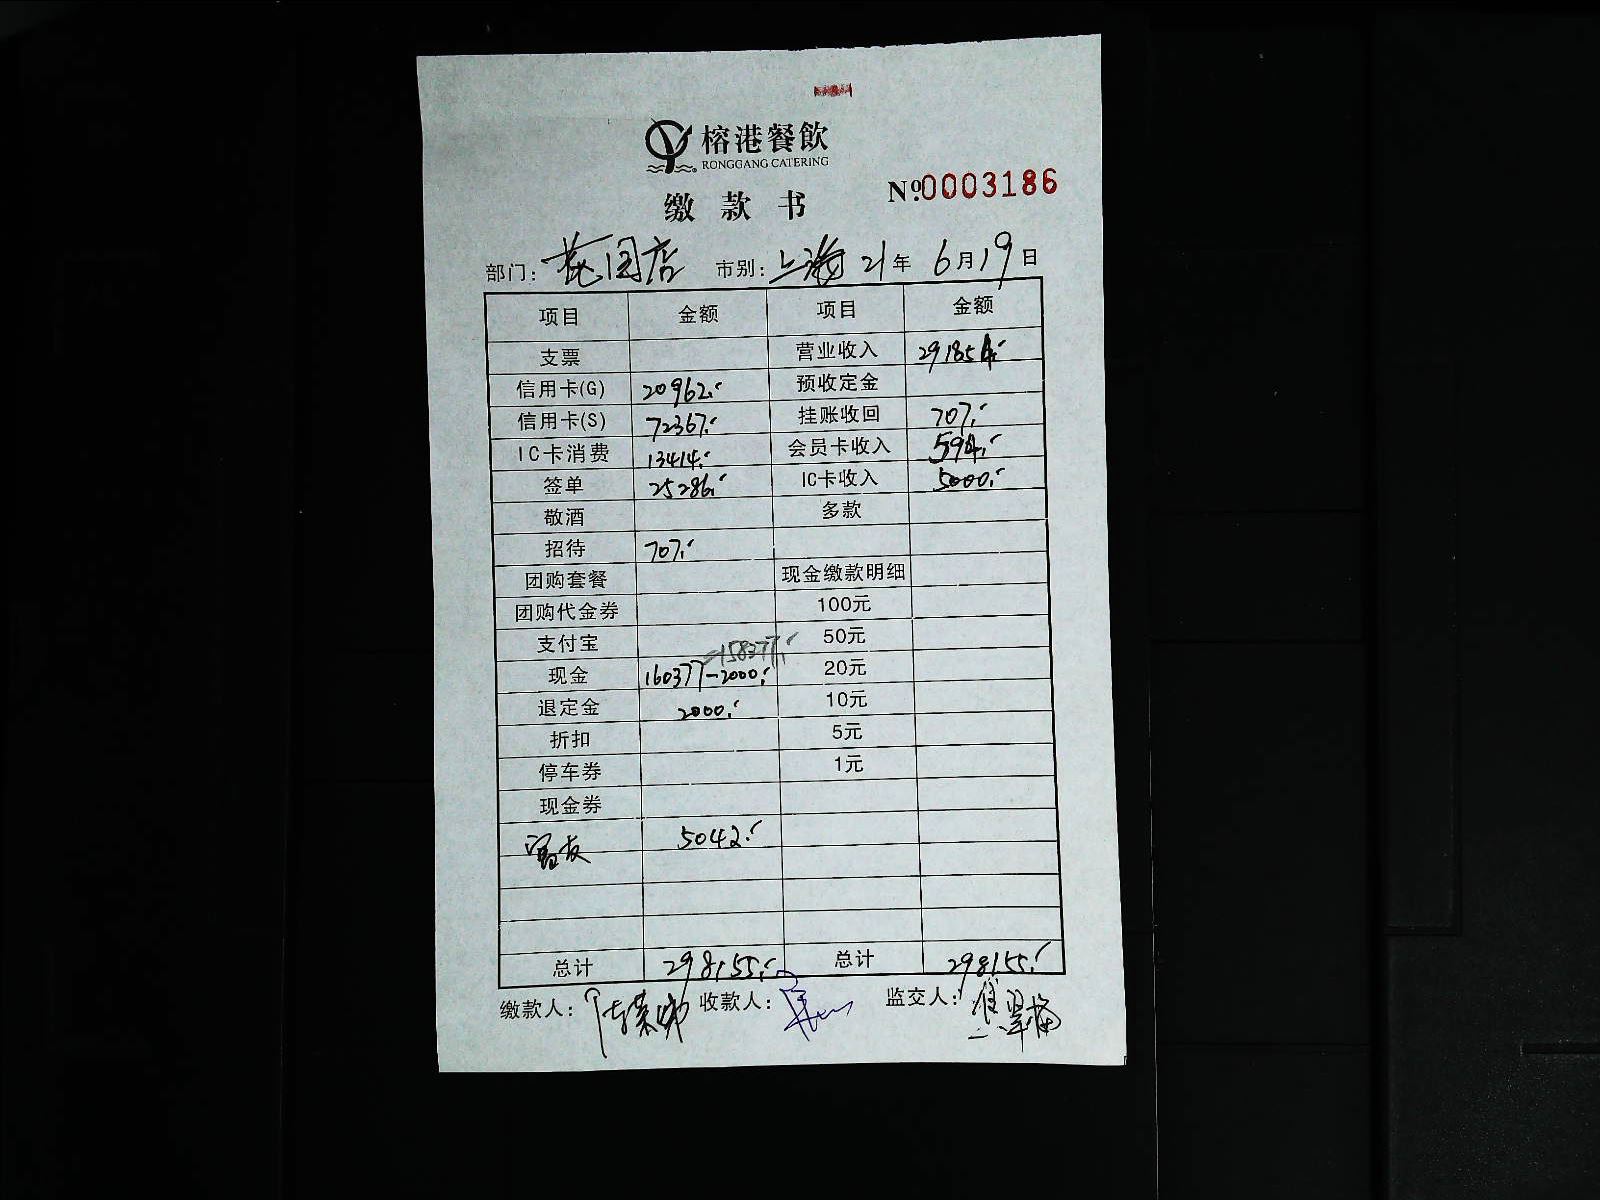 榕港餐飲
RONGGANG CATERING
缴款书
№.0003186
部门: 花园店 市别: 上海 21年 6月19日
项目 金额 项目 金额
支票 营业收入 291854.-
信用卡(G) 20962.- 预收定金
信用卡(S) 72367.- 挂账收回 707.-
IC卡消费 13414.- 会员卡收入 594.-
签单 25286.- IC卡收入 5000.-
敬酒 多款
招待 707.-
团购套餐 现金缴款明细
团购代金券 100元
支付宝 50元
=158377.-
现金 160377-2000.- 20元
退定金 2000.- 10元
折扣 5元
停车券 1元
现金券
5042.-
总计 298155.- 总计 298155.-
缴款人: 收款人: 监交人: